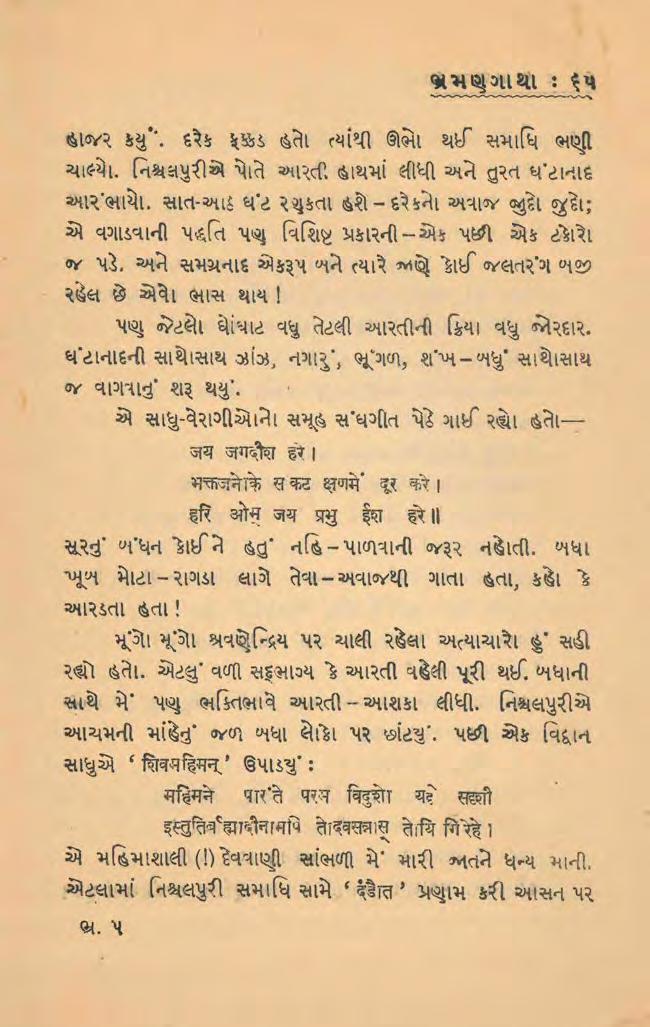 ભ્રમણગાથા : ૬૫
હાજર કર્યું. દરેક ફક્કડ હતો ત્યાંથી ઊભો થઈ સમાધિ ભણી
ચાલ્યો. નિશ્ચલપુરીએ પોતે આરતી હાથમાં લીધી અને તુરત ઘંટાનાદ
આરંભાયો. સાત-આઠ ઘંટ રચુકતા હશે – દરેકનો અવાજ જુદો જુદો;
એ વગાડવાની પદ્ધતિ પણ વિશિષ્ટ પ્રકારની – એક પછી એક ટકોરો
જ પડે. અને સમગ્રનાદ એકરૂપ બને ત્યારે જાણે કોઈ જલતરંગ બજી
રહેલ છે એવો ભાસ થાય !
પણ જેટલો ઘોંઘાટ વધુ તેટલી આરતીની ક્રિયા વધુ જોરદાર.
ઘંટાનાદની સાથોસાથ ઝાંઝ, નગારું, ભૂંગળ, શંખ – બધું સાથોસાથ
જ વાગવાનું શરૂ થયું.
એ સાધુ-વેરાગીઓનો સમૂહ સંઘગીત પેઠે ગાઈ રહ્યો હતો—
जय जगदीश हरे ।
भक्तजनोके संकट क्षणमें दूर करे ।
हरि ओम् जय प्रभु ईश हरे ॥
સૂરનું બંધન કોઈને હતું નહિ – પાળવાની જરૂર નહોતી. બધા
ખૂબ મોટા – રાગડા લાગે તેવા – અવાજથી ગાતા હતા, કહો કે
આરડતા હતા !
મૂંગો મૂંગો શ્રવણેન્દ્રિય પર ચાલી રહેલા અત્યાચારો હું સહી
રહ્યો હતો. એટલું વળી સદ્ભાગ્ય કે આરતી વહેલી પૂરી થઈ. બધાની
સાથે મેં પણ ભક્તિભાવે આરતી – આશકા લીધી. નિશ્ચલપુરીએ
આચમની માંહેનું જળ બધા લોકો પર છાંટયું. પછી એક વિદ્વાન
સાધુએ ‘ शिवमहिमन् ’ ઉપાડયું :
महिमने पारंते परम विदुशो यदे सदृशी
इस्तुतिर्ब्रह्मादीनामपि तोदवसन्नास् तोयि गिरेहे ।
એ મહિમાશાલી (!) દેવવાણી સાંભળી મેં મારી જાતને ધન્ય માની.
એટલામાં નિશ્ચલપુરી સમાધિ સામે ‘ દંડૌત ’ પ્રણામ કરી આસન પર
ભ્ર. ૫